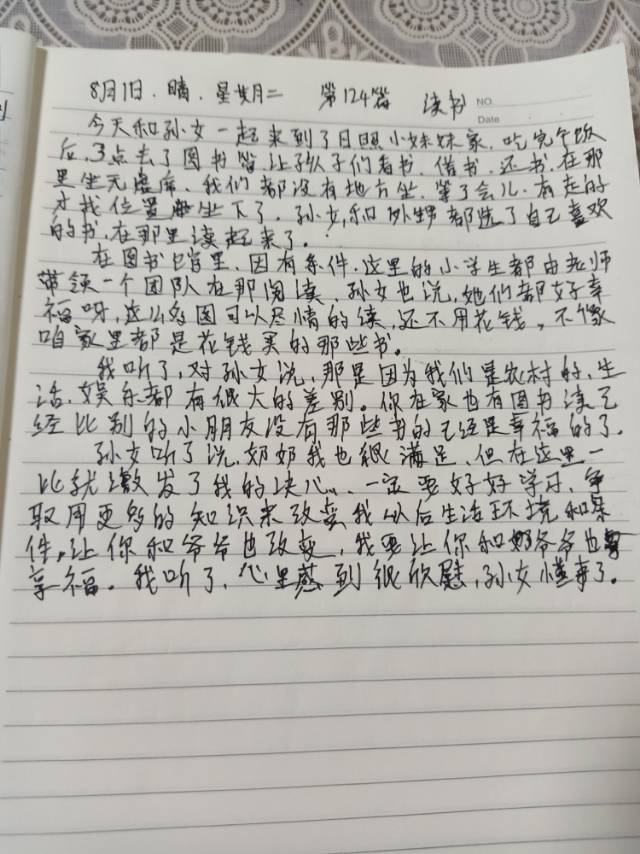 8月1日.晴.星期二 第124篇 读书
NO.
Date
今天和孙女一起来到了日照小妹妹家,吃完午饭
后,3点去了图书馆,让孙子们看书.借书.还书.在那
里坐无虚席.我们都没有地方坐.等了会儿.有走的
才找位置坐下了.孙女,和外甥都选了自己喜欢
的书,在那里读起来了。
在图书馆里.因有条件.这里的小学生都由老师
带领一个团队在那阅读.孙女也说,她们都好幸
福呀,这么多图可以尽情的读,还不用花钱,不像
咱家里都是花钱买的那些书。
我听了,对孙女说,那是因为我们是农村的,生
活.娱乐都有很大的差别。你在家也有图书读已
经比别的小朋友没有那些书的已经是幸福的了.
孙女听了说,奶奶我也很满足,但在这里一
比就激发了我的决心.一定要好好学习,争
取用更多的知识来改变我以后生活环境和条
件,让你和爷爷也改变,我要让你和爷爷也
享福.我听了,心里感到很欣慰,孙女懂事了.